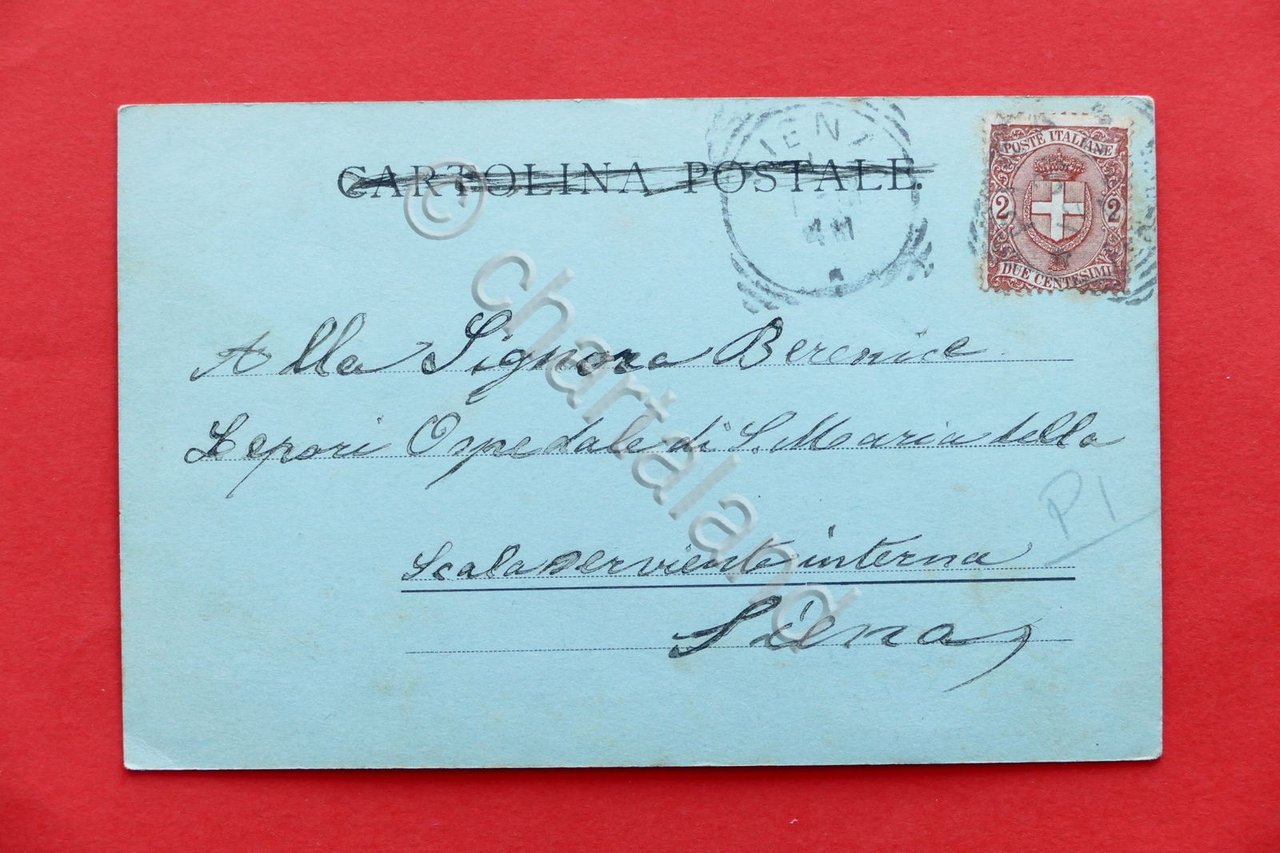 CARTOLINA POSTALE
POSTE ITALIANE
2 2
DUE CENTESIMI
Alla Signora Berenice
Lepori Ospedale di S. Maria della
Scala serviente interna
Siena
P1
© chartaland